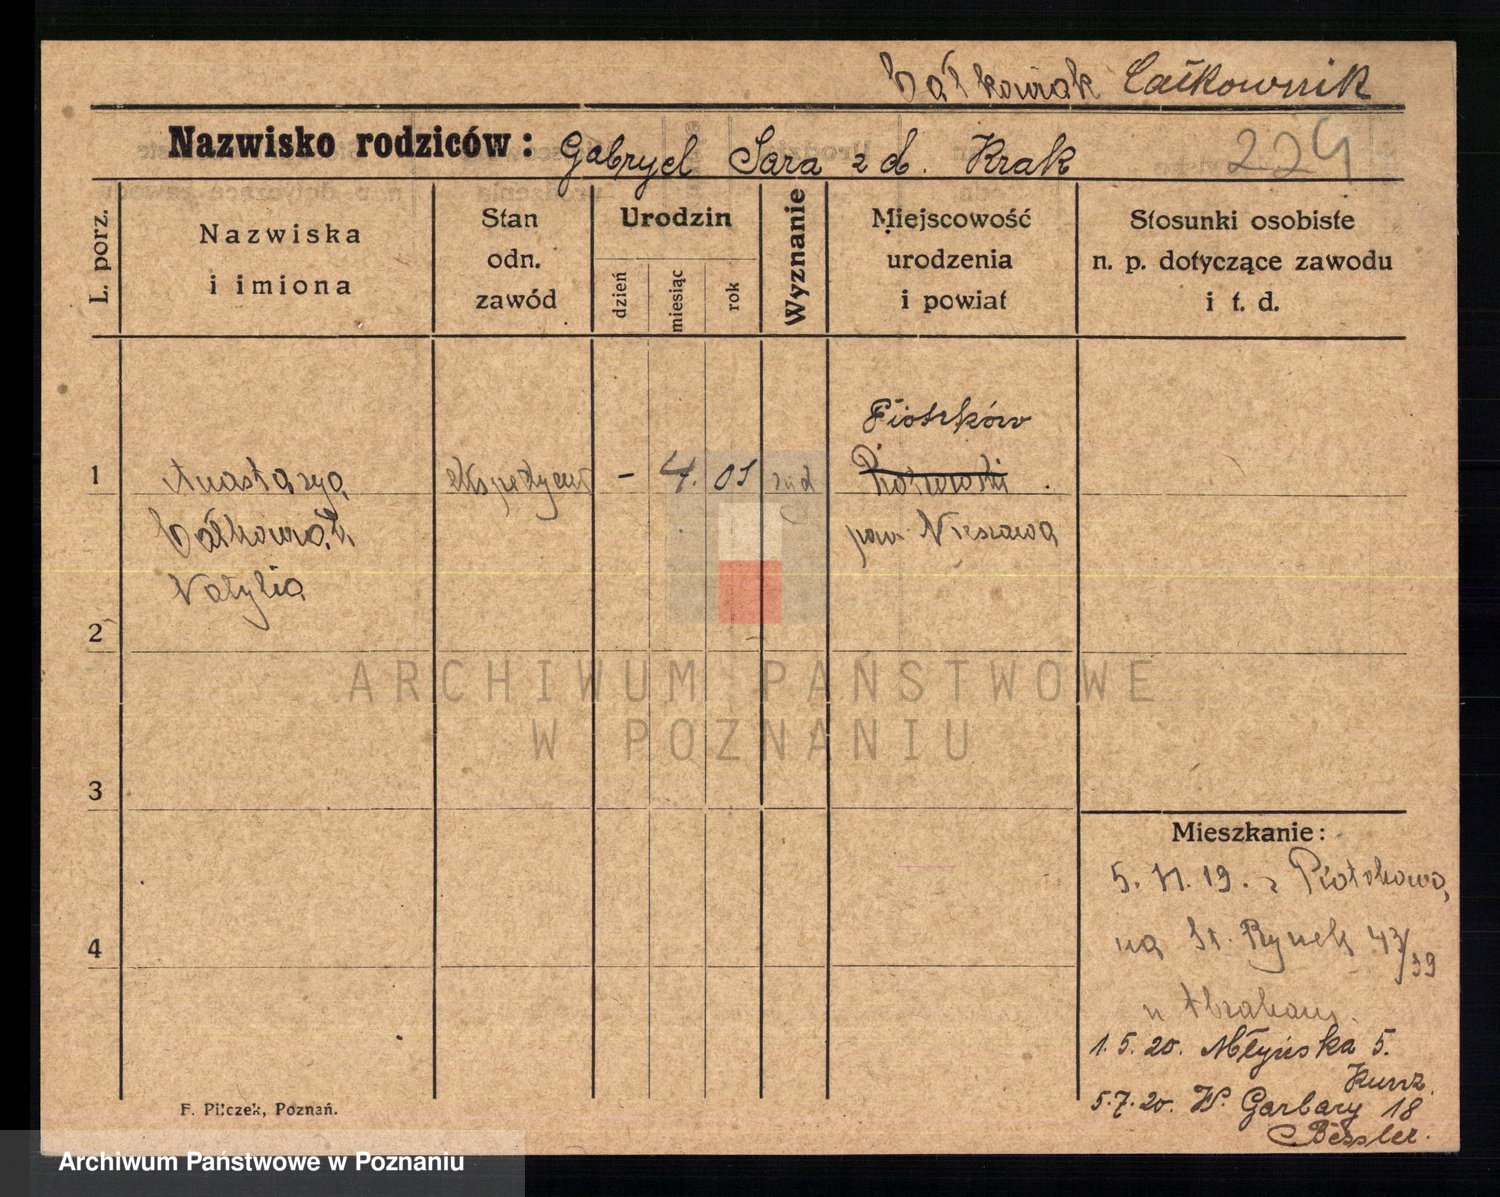 Całkowiak Całkownik
Nazwisko rodziców: Gabryel Sara z d. Krak
224
L. porz.
Nazwiska
i imiona
Stan
odn.
zawód
Urodzin
dzień
miesiąc
rok
Wyznanie
Miejscowość
urodzenia
i powiat
Stosunki osobiste
n. p. dotyczące zawodu
i t. d.
Piotrków
1 Anastazya - 4. 01
pow Nieszawa
Natylia
2
3
4
ARCHIWUM PAŃSTWOWE
W POZNANIU
Mieszkanie:
5. 11. 19. z
na St. Rynek 43/39
u Abraham.
1. 5. 20. Młyńska 5.
Kunz.
5. 7. 20. W. Garbary 18
Bessler.
F. Pilczek, Poznań.
Archiwum Państwowe w Poznaniu